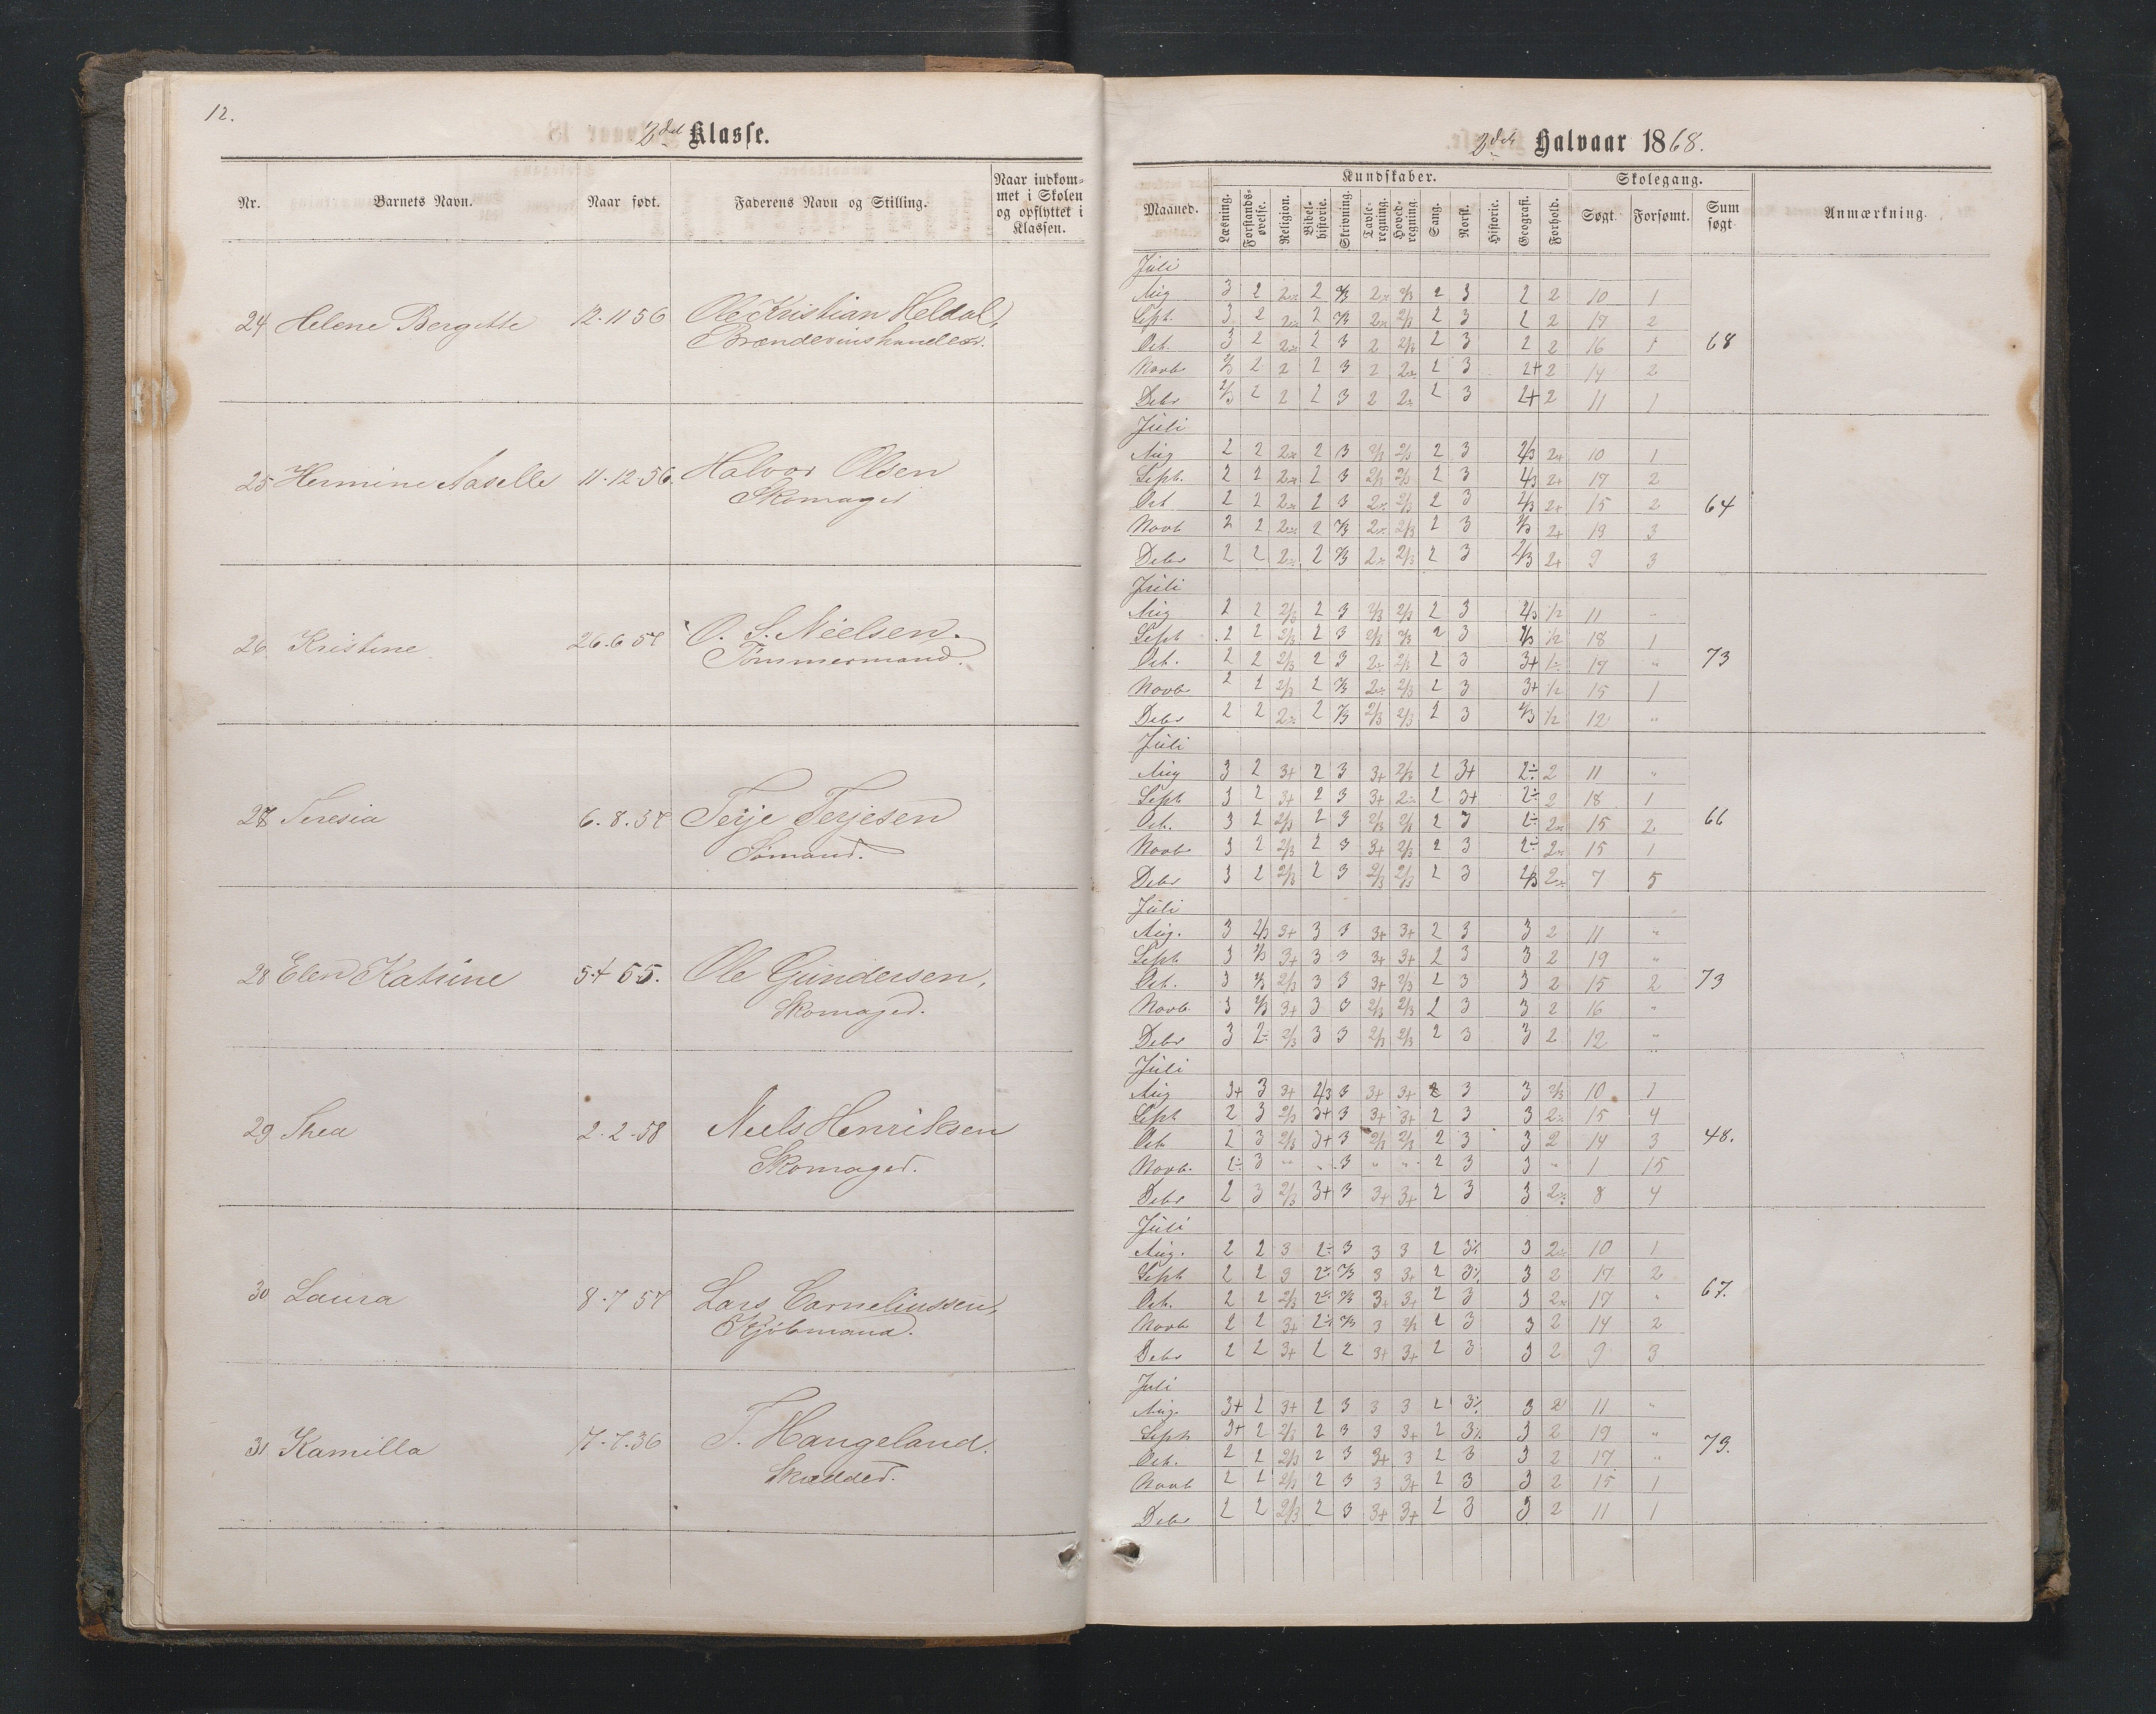 12.
2det Klasse.
Nr. Barnets Navn. Naar født. Faderens Navn og Stilling. Naar indkommet i Skolen og opflyttet i Klassen.
24 Helene Bergitte 12-11 56 Ole Kristian Heldal,
Brændeviinshandler.
25 Hermine Aaselle 11-12-56. Halvor Olsen
Skomager
26 Kristine 26-6 57 O. S. Nielsen.
Tømmermand.
27 Teresia 6-8-57 Terje Terjesen
Sømand.
28 Elen Katrine 5-4 55. Ole Gundersen,
Skomager.
29 Thea 2-2-58 Niels Henriksen
Skomager.
30 Laura 8-7 57 Lars Corneliussen,
Kjøbmand.
31 Kamilla 7-7-56 T. Haugeland.
Skrædder.
2det Halvaar 1868.
Kundskaber. Skolegang.
Maaned. Læsning. Forstandsøvelse. Religion. Bibelhistorie. Skrivning. Tavleregning. Hovedregning. Sang. Norsk. Historie. Geografi. Forhold. Søgt. Forsømt. Sum søgt Anmærkning.
Juli
Aug 3 2 2÷ 2 2/3 2÷ 2/3 2 3 2 2 10 1
Sept. 3 2 2÷ 2 2/3 2÷ 2/3 2 3 2 2 17 2
Oct. 3 2 2÷ 2 3 2 2/3 2 3 2 2 16 1 68
Novb 2/3 2 2 2 3 2 2÷ 2 3 2+ 2 14 2
Debr 2/3 2 2 2 3 2 2÷ 2 3 2+ 2 11 1
Juli
Aug 2 2 2÷ 2 3 2/3 2/3 2 3 2/3 2+ 10 1
Sept. 2 2 2÷ 2 3 2/3 2/3 2 3 2/3 2+ 17 2
Oct 2 2 2÷ 2 3 2÷ 2/3 2 3 2/3 2+ 15 2 64
Novb 2 2 2÷ 2 2/3 2÷ 2/3 2 3 2/3 2+ 13 3
Debr 2 2 2÷ 2 2/3 2÷ 2/3 2 3 2/3 2+ 9 3
Juli
Aug 2 2 2/3 2 3 2/3 2/3 2 3 2/3 1/2 11 "
Sept 2 2 2/3 2 3 2/3 2/3 2 3 2/3 1/2 18 1
Oct. 2 2 2/3 2 3 2÷ 2/3 2 3 3+ 1÷ 17 " 73
Novb 2 2 2/3 2 2/3 2÷ 2/3 2 3 3+ 1/2 15 1
Debr 2 2 2÷ 2 2/3 2/3 2/3 2 3 2/3 1/2 12 "
Juli
Aug 3 2 3+ 2 3 3+ 2/3 2 3+ 2÷ 2 11 "
Sept 3 2 3+ 2 3 3+ 2÷ 2 3+ 2÷ 2 18 1
Oct. 3 2 2/3 2 3 2/3 2/3 2 3 2÷ 2÷ 15 2 66
Novb 3 2 2/3 2 3 3+ 2/3 2 3 2÷ 2÷ 15 1
Debr 3 2 2/3 2 3 2/3 2/3 2 3 2/3 2÷ 7 5
Juli
Aug. 3 2/3 3+ 3 3 3+ 3+ 2 3 3 2 11 "
Sept 3 2/3 3+ 3 3 3+ 3+ 2 3 3 2 19 "
Oct. 3 2/3 2/3 3 3 3+ 2/3 2 3 3 2 15 2 73
Novb. 3 2/3 3+ 3 3 2/3 2/3 2 3 3 2 16 "
Debr 3 2÷ 2/3 3 3 2/3 2/3 2 3 3 2 12 "
Juli
Aug 3+ 3 3+ 2/3 3 3+ 3+ 2 3 3 2/3 10 1
Sept 2 3 2/3 3+ 3 3+ 3+ 2 3 3 2÷ 15 4
Oct 2 3 2/3 3+ 3 2/3 2/3 2 3 3 2 14 3 48.
Novb. 2÷ 3 " " 3 " " 2 3 3 " 1 15
Debr 2 3 2/3 3+ 3 3+ 3+ 2 3 3 2÷ 8 4
Juli
Aug. 2 2 3 2÷ 3 3 3 2 3÷ 3 2÷ 10 1
Sept 2 2 3 2÷ 2/3 3 3+ 2 3÷ 3 2 17 2
Oct. 2 2 2/3 2÷ 2/3 3+ 3+ 2 3 3 2÷ 17 " 67.
Novb 2 2 3+ 2÷ 2/3 3 2/3 2 3 3 2 14 2
Debr 2 2 3+ 2 2 3+ 3+ 2 3 3 2 9 3
Juli
Aug. 3+ 2 3+ 2 3 3 3 2 3÷ 3 2 11 "
Sept 3+ 2 2/3 2 3 3 3+ 2 3÷ 3 2 19 "
Oct. 2 2 2/3 2 3 3+ 3 2 3 3 2 17 " 73.
Novb 2 2 2/3 2 3 3 3+ 2 3 3 2 15 1
Debr 2 2 2/3 2 3 3+ 3+ 2 3 3 2 11 1